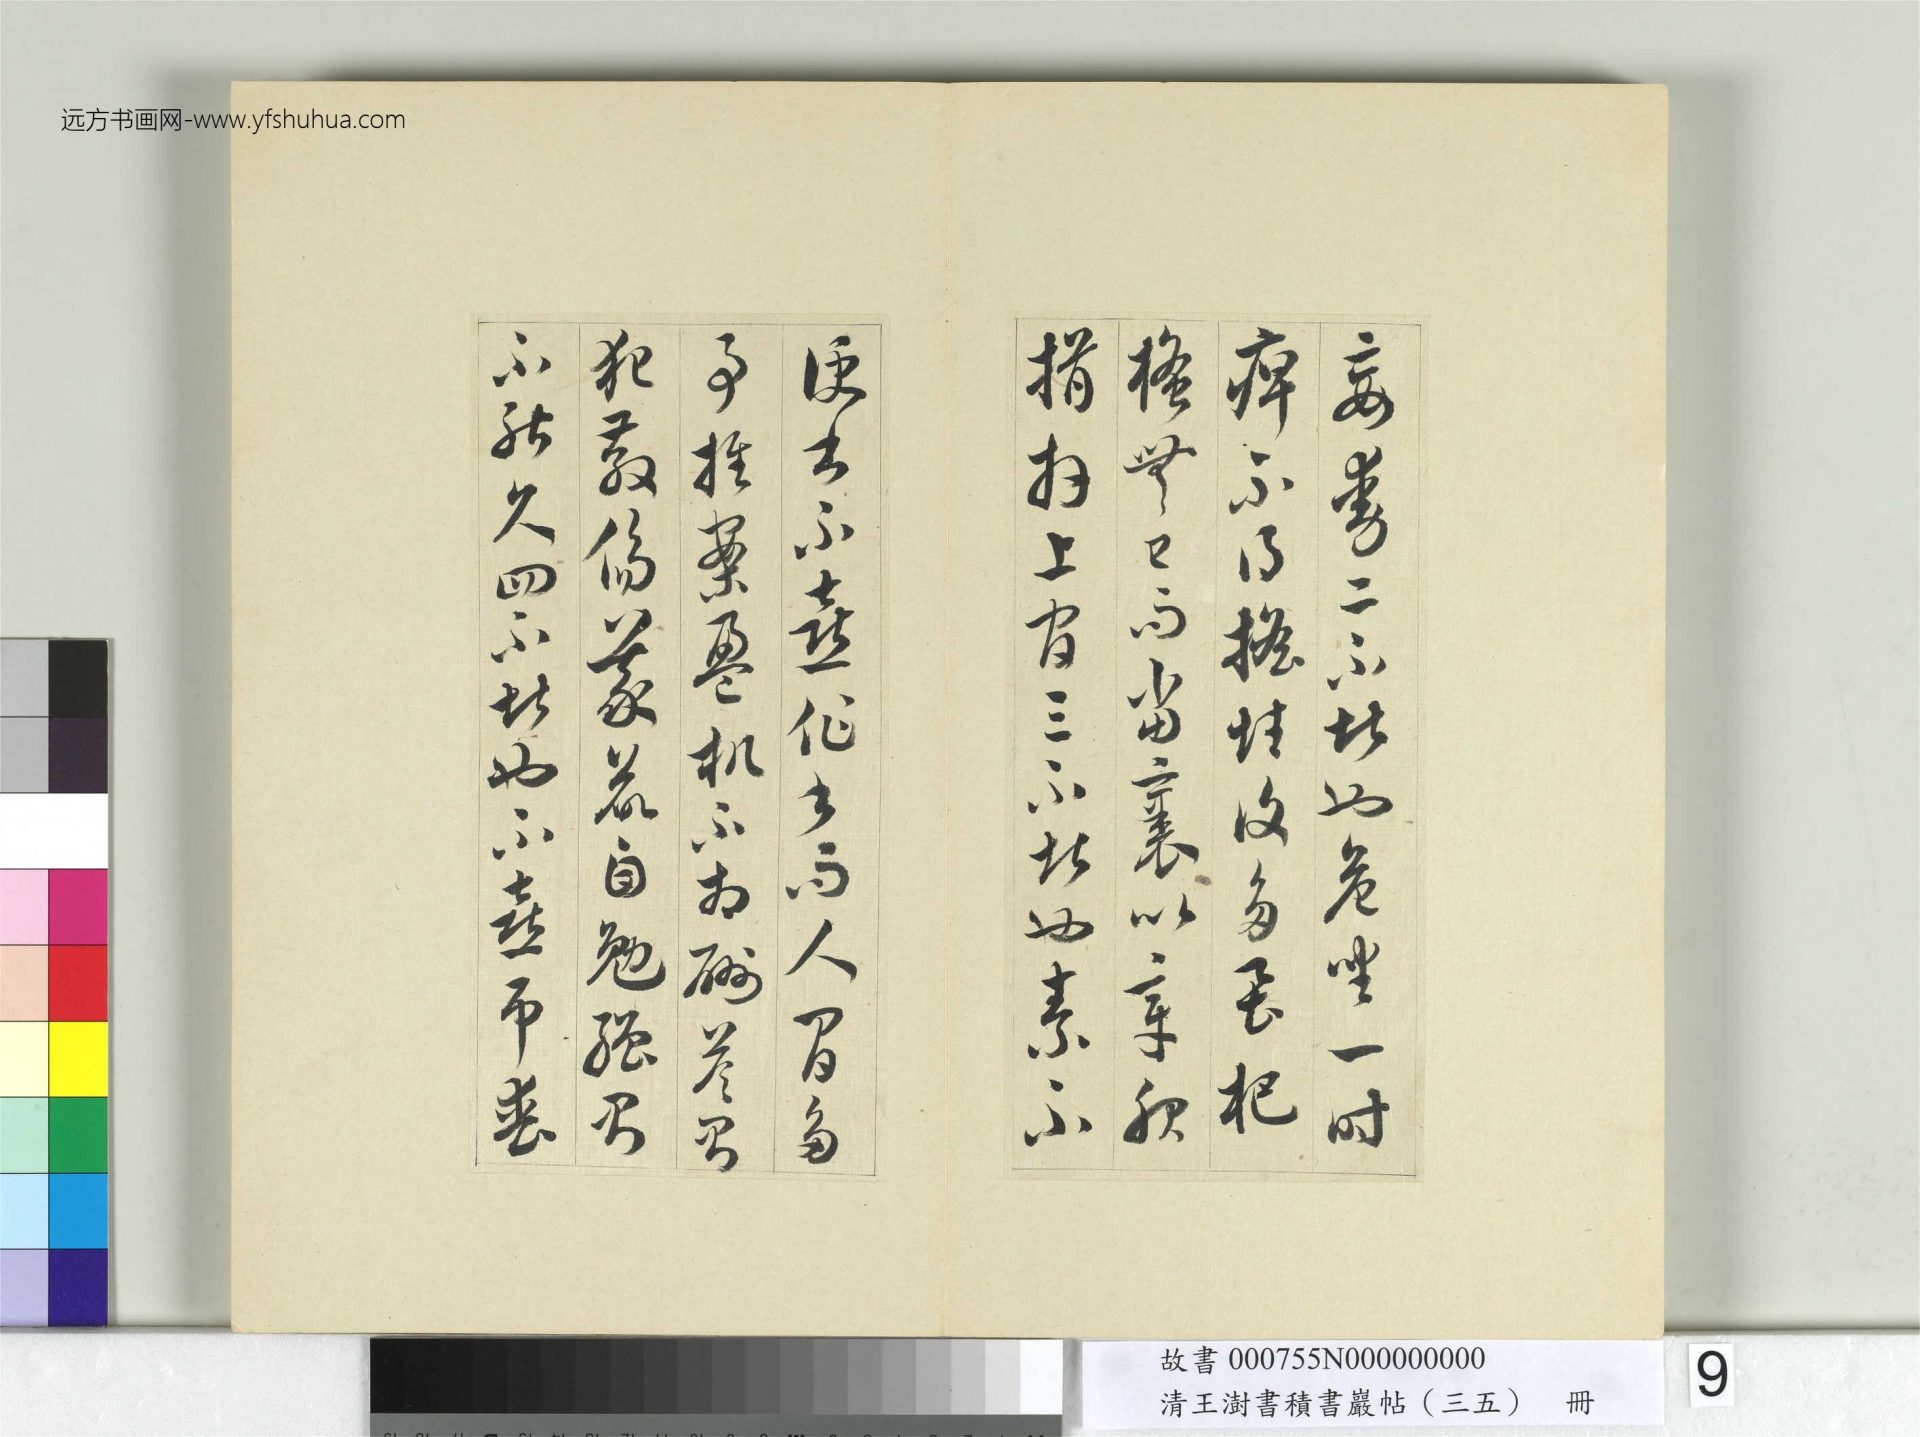 远方书画网-www.yfshuhua.com
妄動二不堪也危坐一時
痺不得搖性復多虱把
搔無已而當裹以章服
揖拜上官三不堪也素不
便書不喜作書而人間多
事推案盈机不相酬答則
犯教傷義欲自勉強則
不能久四不堪也不喜弔喪
故書 000755N000000000
清王澍書積書巖帖（三五） 冊
9